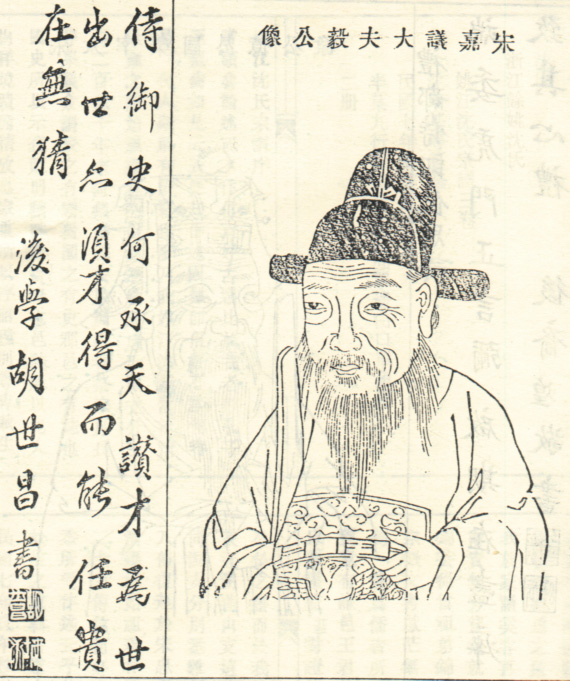 宋嘉議大夫毅公像
侍御史何承天讚才為世
出世亦須才得而能任貴
在無猜
後學胡世昌書